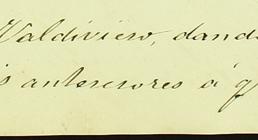 Valdivieso, dand
s antesesores á q